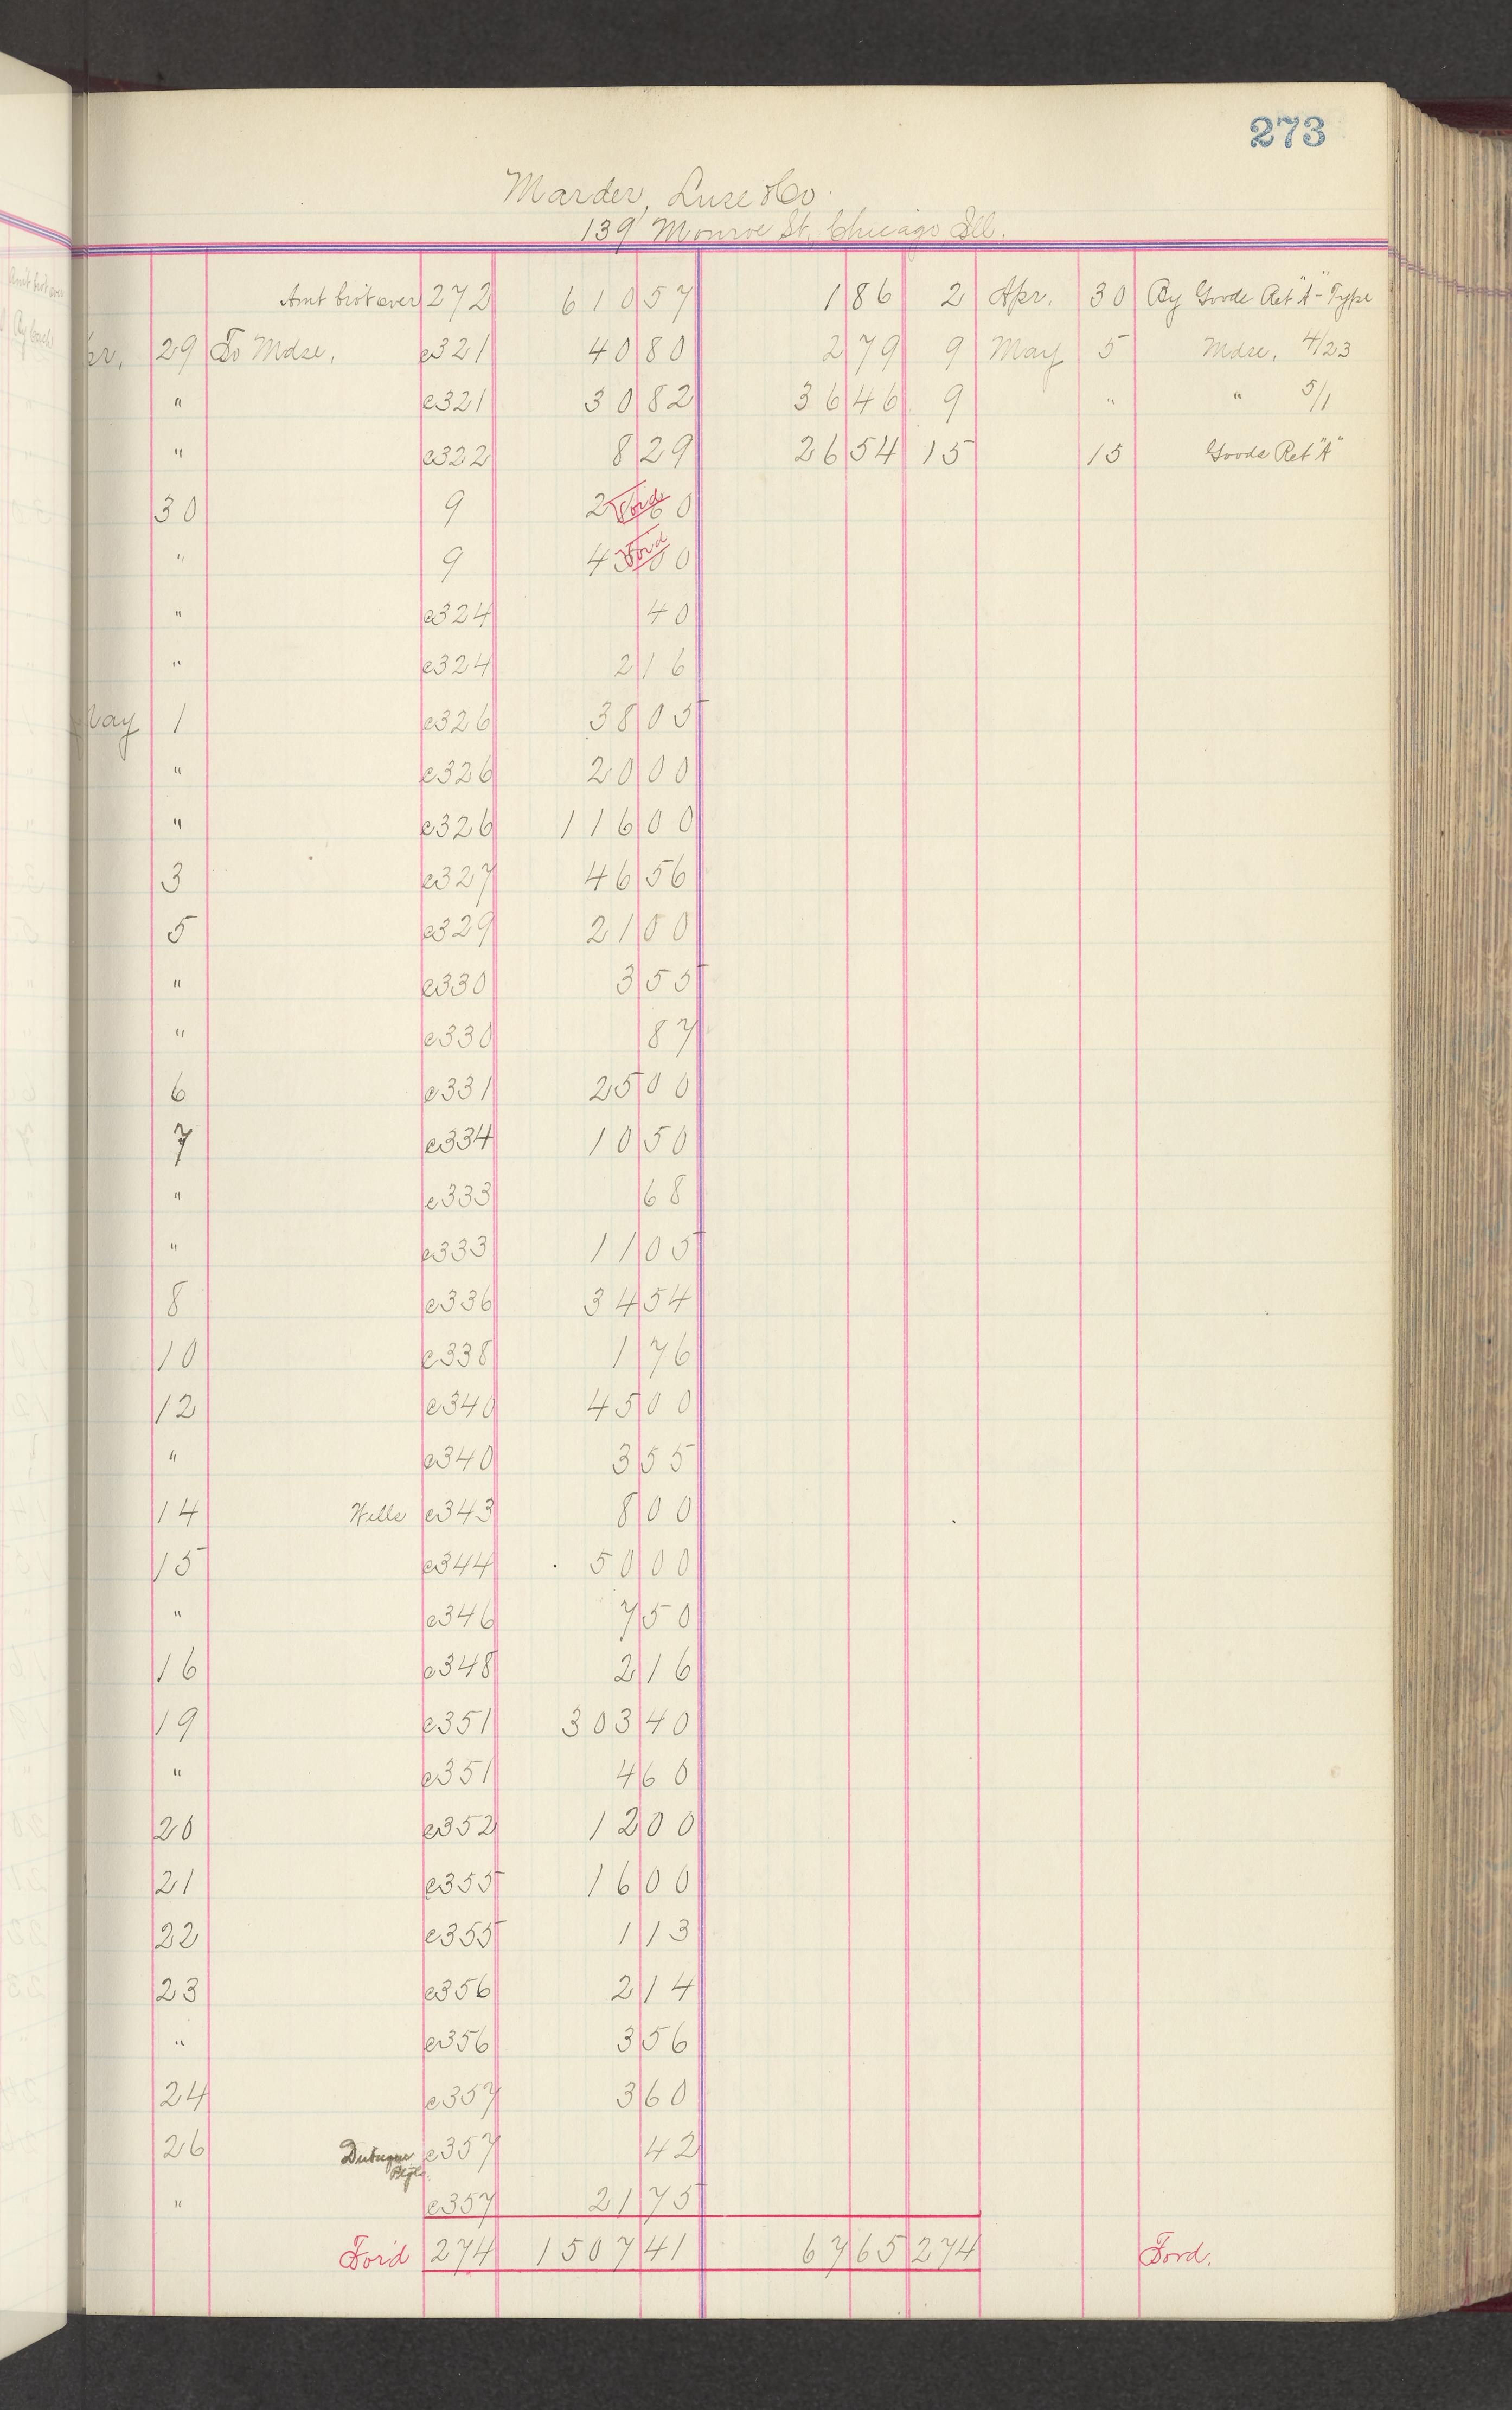 273
Marder, Luse & Co.
139 Monroe St, Chicago, Ill.
Amt brot over 272 610 57 1 86 2 Apr. 30 By Goods Ret "A" - Type
29 To Mdse, c321 40 80 2 79 9 May 5 Mdse, 4/23
" c321 30 82 36 46 9 " " 5/1
" c322 8 29 26 54 15 15 Goods Ret "A"
30 9 60 Ford
" 9 00 Ford
" c324 40
" c324 2 16
May 1 c326 38 05
" c326 20 00
" c326 116 00
3 c327 46 56
5 c329 21 00
" c330 3 55
" c330 87
6 c331 25 00
7 c334 10 50
" c333 68
" c333 11 05
8 c336 34 54
10 c338 1 76
12 c340 45 00
" c340 3 55
14 Wells c343 8 00
15 c344 50 00
" c346 7 50
16 c348 2 16
19 c351 303 40
" c351 4 60
20 c352 12 00
21 c355 16 00
22 c355 1 13
23 c356 2 14
" c356 3 56
24 c357 3 60
26 Dubuque c357 42
" c357 21 75
Ford 274 1507 41 67 65 274 Ford.